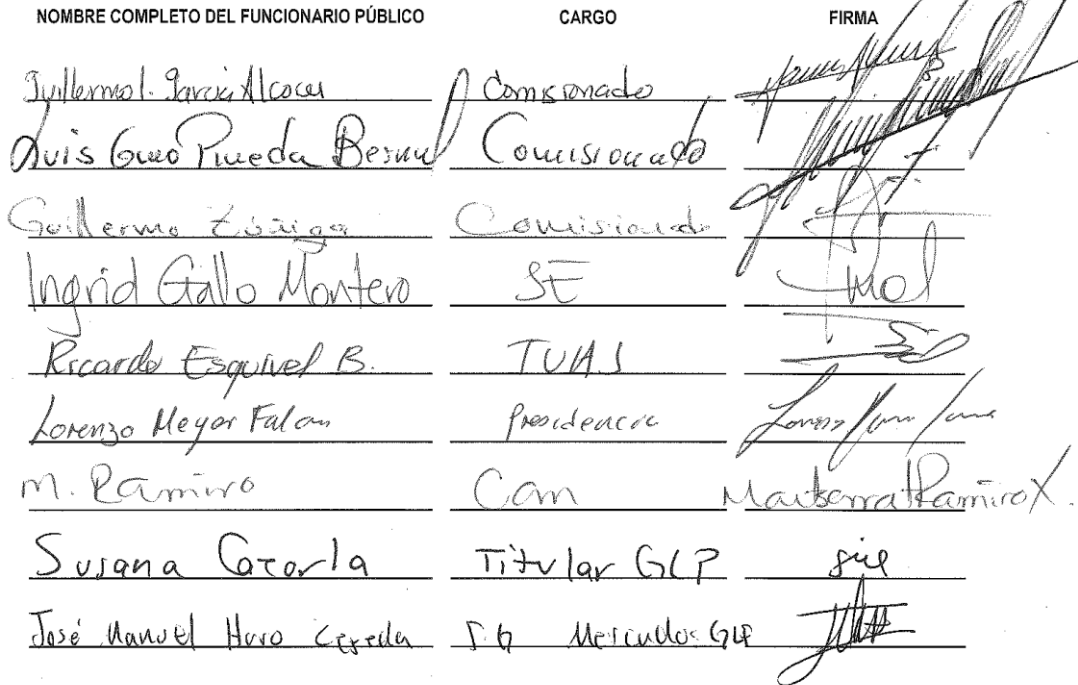 NOMBRE COMPLETO DEL FUNCIONARIO PÚBLICO CARGO FIRMA
Guillermo I. García Alcocer Comisionado
Luis Guillermo Pineda Bernal Comisionado
Guillermo Zúñiga Comisionado
Ingrid Gallo Montero SE
Ricardo Esquivel B.
Lorenzo Meyer Falcon Presidencia
M. Ramiro Com Montserrat Ramiro X.
Susana Cazorla Titular GLP
José Manuel Haro Mercados GLP